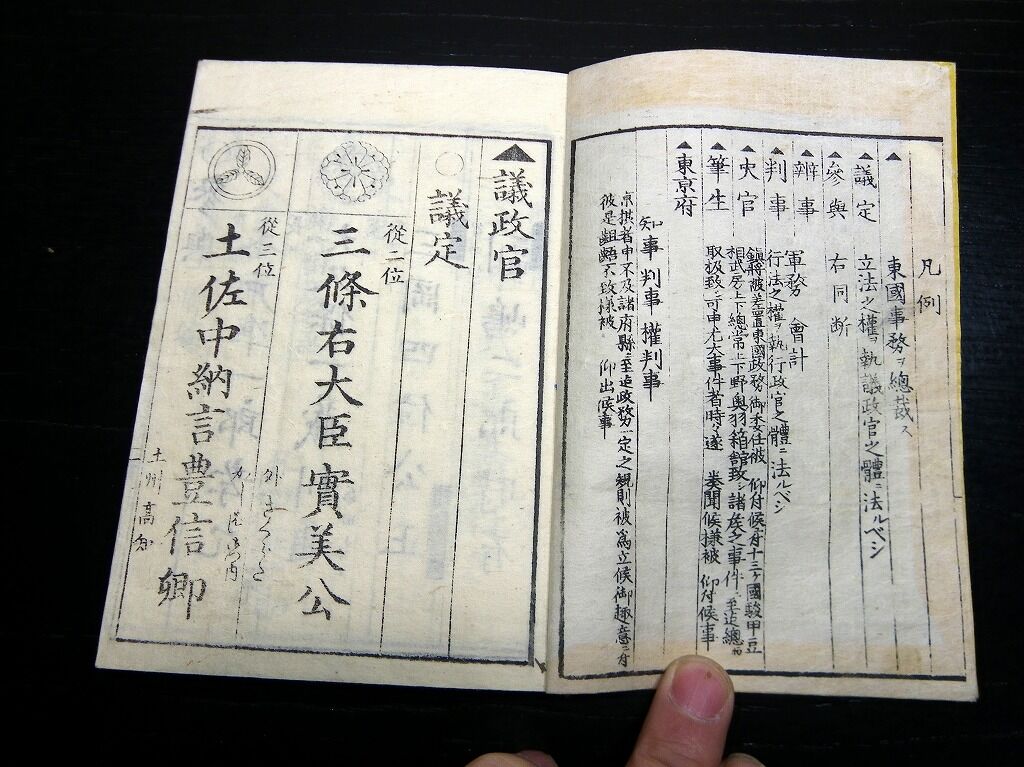 凡例
▲
東國事務ヲ總裁ス
議定
立法之權ヲ執議政官之體ニ法ルベシ
▲參與
右同断
▲辨事
軍務 會計
▲判事
行法之權ヲ執行政官之體ニ法ルベシ
▲史官
鎮將被差置東國政務御委任被 仰付候ニ付十三ヶ國駿甲豆
相武房上下總常上下野奥羽箱舘致シ諸矦之事件ニ至迄總而
▲筆生
取扱致シ可申尤大事件者時々遂 奏聞候様被 仰付候事
▲東京府
知事 判事 權判事
京攝者申不及諸府縣ニ至迄政務一定之規則被為立候御趣意ニ付
彼是齟齬不致様被 仰出候事
▲議政官
○議定
從二位
三條右大臣實美公
從二位
土佐中納言豊信卿
土州高知